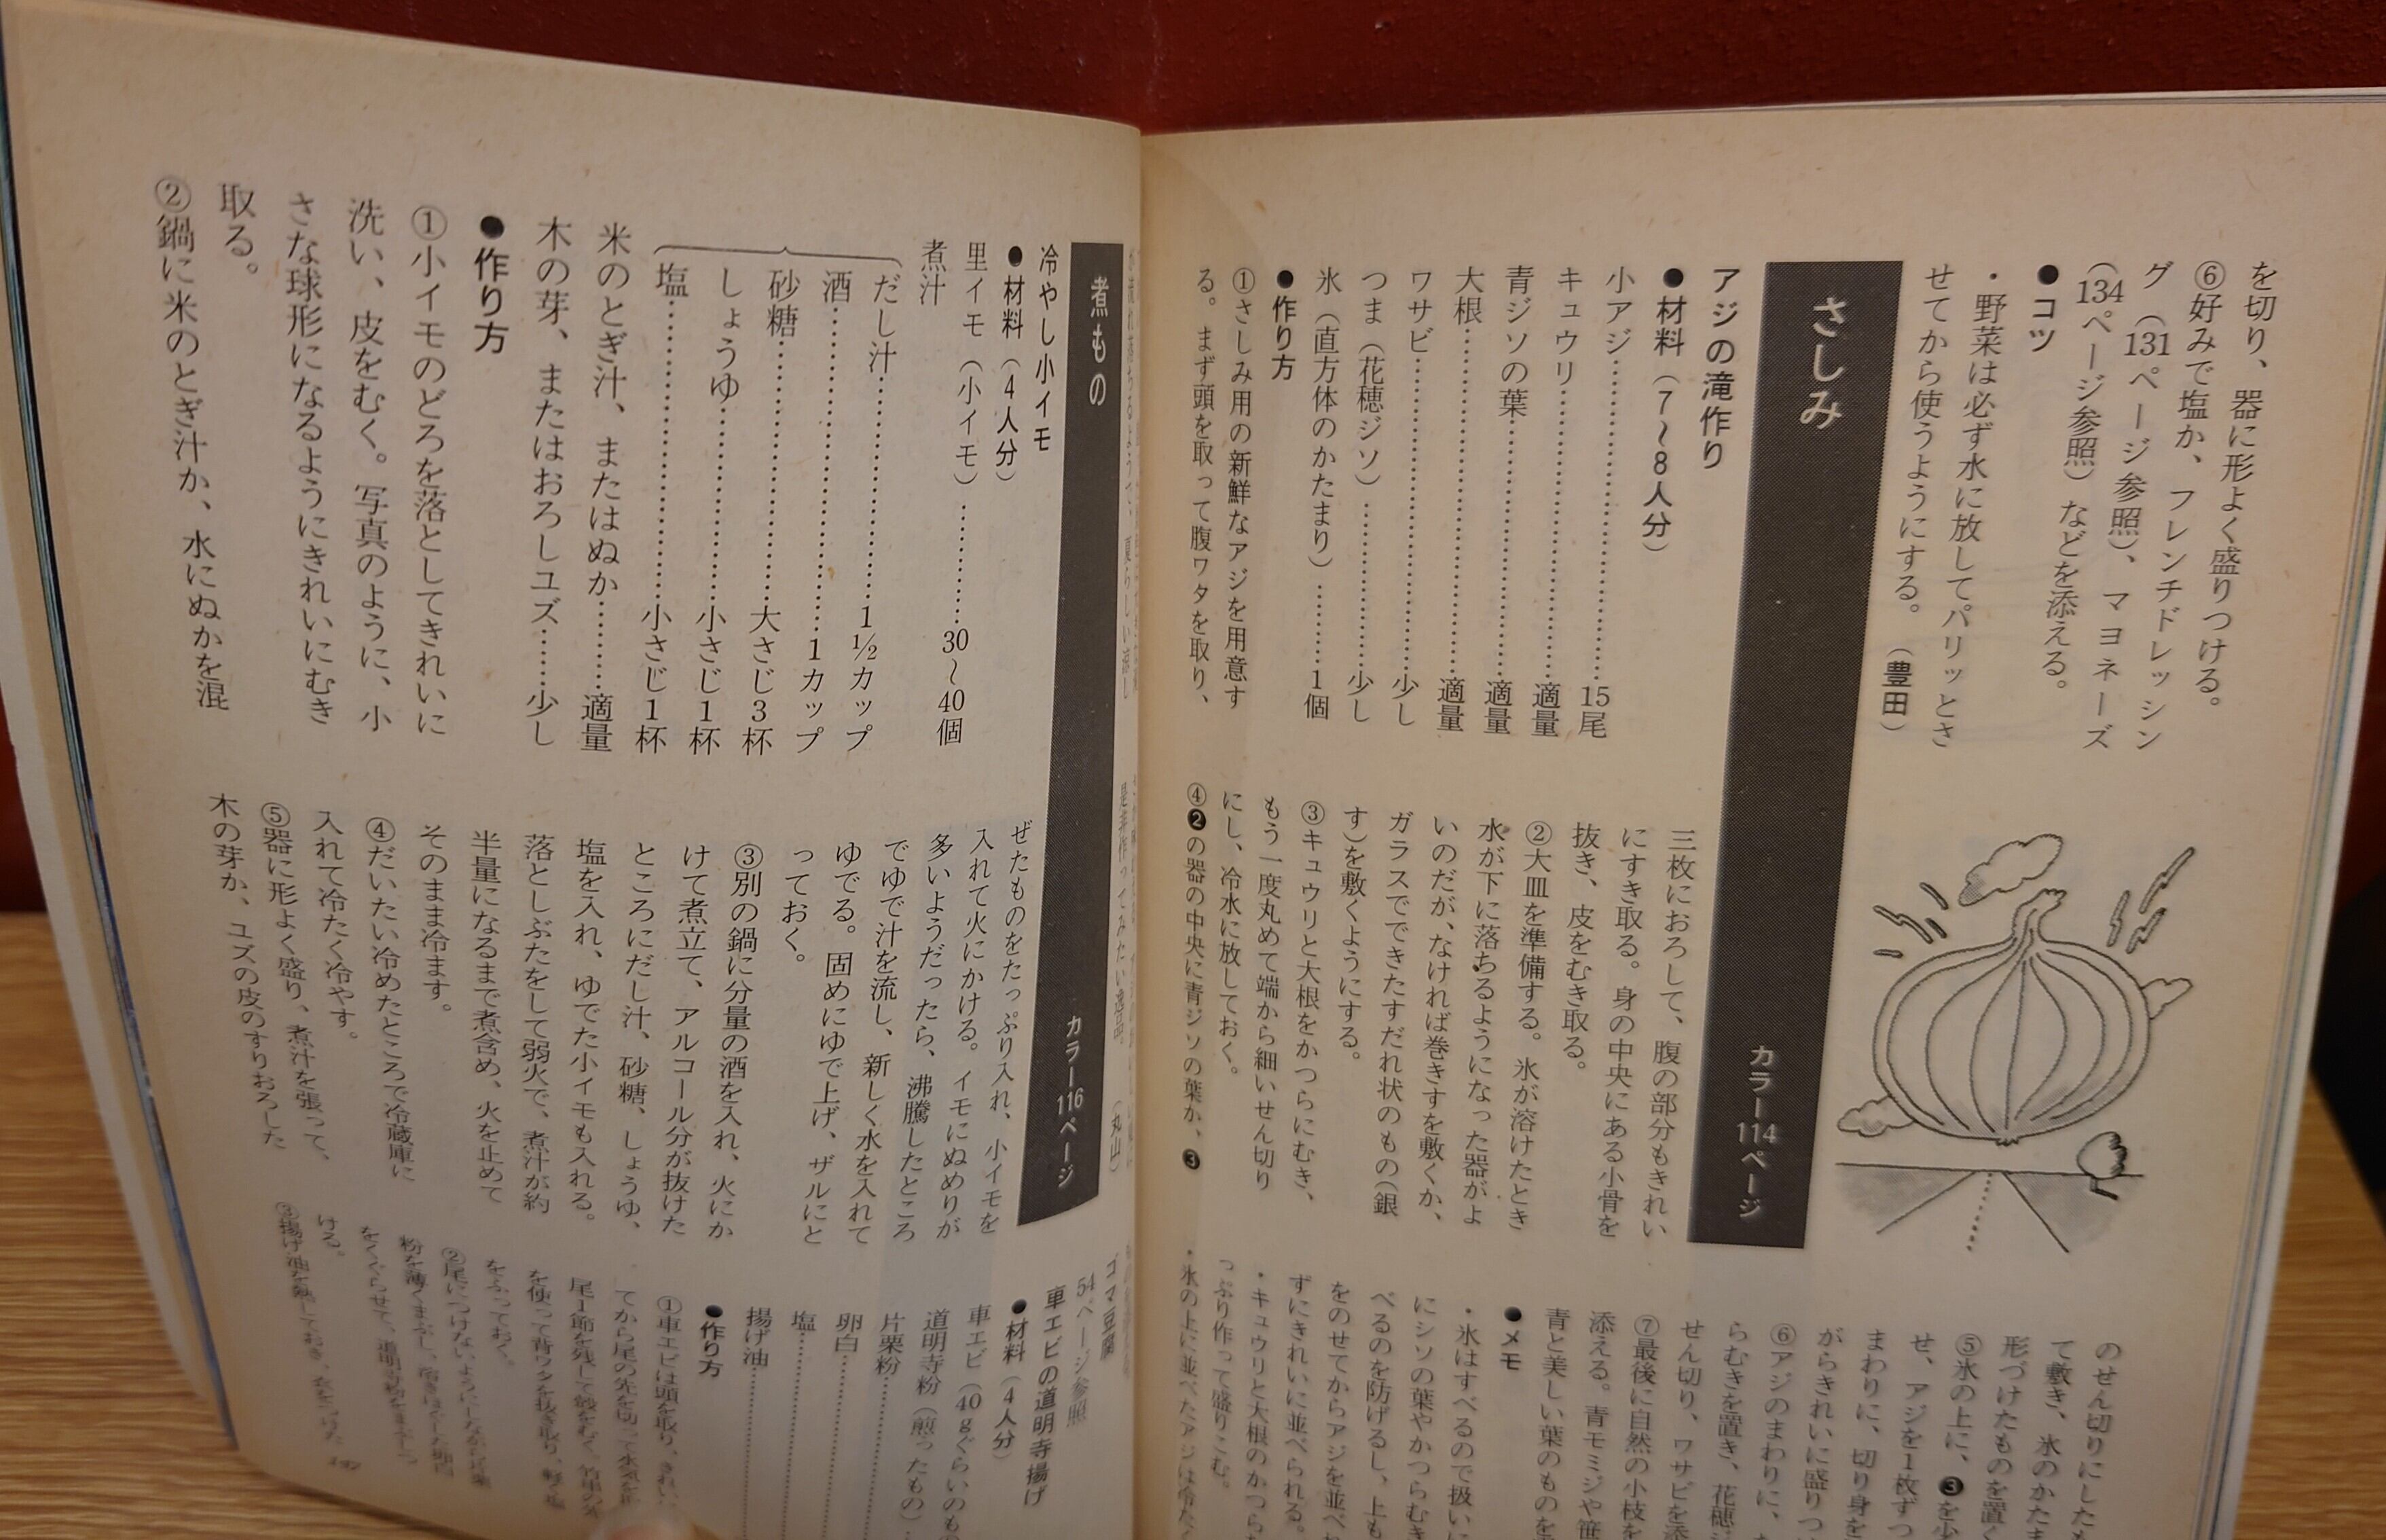 を切り、器に形よく盛りつける。
⑥好みで塩か、フレンチドレッシン
グ（131ページ参照）、マヨネーズ
（134ページ参照）などを添える。
●コツ
・野菜は必ず水に放してパリッとさ
せてから使うようにする。（豊田）
さしみ　カラー114ページ
アジの滝作り
●材料（7〜8人分）
小アジ……………15尾
キュウリ……………適量
青ジソの葉……………適量
大根……………適量
ワサビ……………少し
つま（花穂ジソ）…………少し
氷（直方体のかたまり）………1個
●作り方
①さしみ用の新鮮なアジを用意す
る。まず頭を取って腹ワタを取り、
三枚におろして、腹の部分もきれい
にすき取る。身の中央にある小骨を
抜き、皮をむき取る。
②大皿を準備する。氷が溶けたとき
水が下に落ちるようになった器がよ
いのだが、なければ巻きすを敷くか、
ガラスでできたすだれ状のもの（銀
す）を敷くようにする。
③キュウリと大根をかつらにむき、
もう一度丸めて端から細いせん切り
にし、冷水に放しておく。
④❷の器の中央に青ジソの葉か、❸
のせん切りにした
て敷き、氷のかた
形づけたものを置
⑤氷の上に、❸を少
せ、アジを1枚ずつ
まわりに、切り身を
がらきれいに盛りつ
⑥アジのまわりに、
らむきを置き、花穂ジ
せん切り、ワサビを添
⑦最後に自然の小枝を
添える。青モミジや笹
青と美しい葉のものを
●メモ
・氷はすべるので扱いに
にシソの葉やかつらむき
べるのを防げるし、上も
をのせてからアジを並べ
ずにきれいに並べられる。
・キュウリと大根のかつら
っぷり作って盛りこむ。
・氷の上に並べたアジは冷たく
（丸山）
煮もの　カラー116ページ
冷やし小イモ
●材料（4人分）
里イモ（小イモ）…………30〜40個
煮汁
だし汁……………1½カップ
酒……………1カップ
砂糖……………大さじ3杯
しょうゆ……………小さじ1杯
塩……………小さじ1杯
米のとぎ汁、またはぬか………適量
木の芽、またはおろしユズ……少し
●作り方
①小イモのどろを落としてきれいに
洗い、皮をむく。写真のように、小
さな球形になるようにきれいにむき
取る。
②鍋に米のとぎ汁か、水にぬかを混
ぜたものをたっぷり入れ、小イモを
入れて火にかける。イモにぬめりが
多いようだったら、沸騰したところ
でゆで汁を流し、新しく水を入れて
ゆでる。固めにゆで上げ、ザルにと
っておく。
③別の鍋に分量の酒を入れ、火にか
けて煮立て、アルコール分が抜けた
ところにだし汁、砂糖、しょうゆ、
塩を入れ、ゆでた小イモも入れる。
落としぶたをして弱火で、煮汁が約
半量になるまで煮含め、火を止めて
そのまま冷ます。
④だいたい冷めたところで冷蔵庫に
入れて冷たく冷やす。
⑤器に形よく盛り、煮汁を張って、
木の芽か、ユズの皮のすりおろした
ゴマ豆腐
54ページ参照
車エビの道明寺揚げ
●材料（4人分）
車エビ（40gぐらいのもの
道明寺粉（煎ったもの）
片栗粉……………
卵白……………
塩……………
揚げ油……………
●作り方
①車エビは頭を取り、きれい
てから尾の先を切って水気を
尾1節を残して殻をむく。
を使って背ワタを抜き取り、
をふっておく。
②尾につけないようにしながら片栗
粉を薄くまぶし、溶きほぐした卵白
をくぐらせて、道明寺粉をまぶしつ
ける。
③揚げ油を熱しておき、